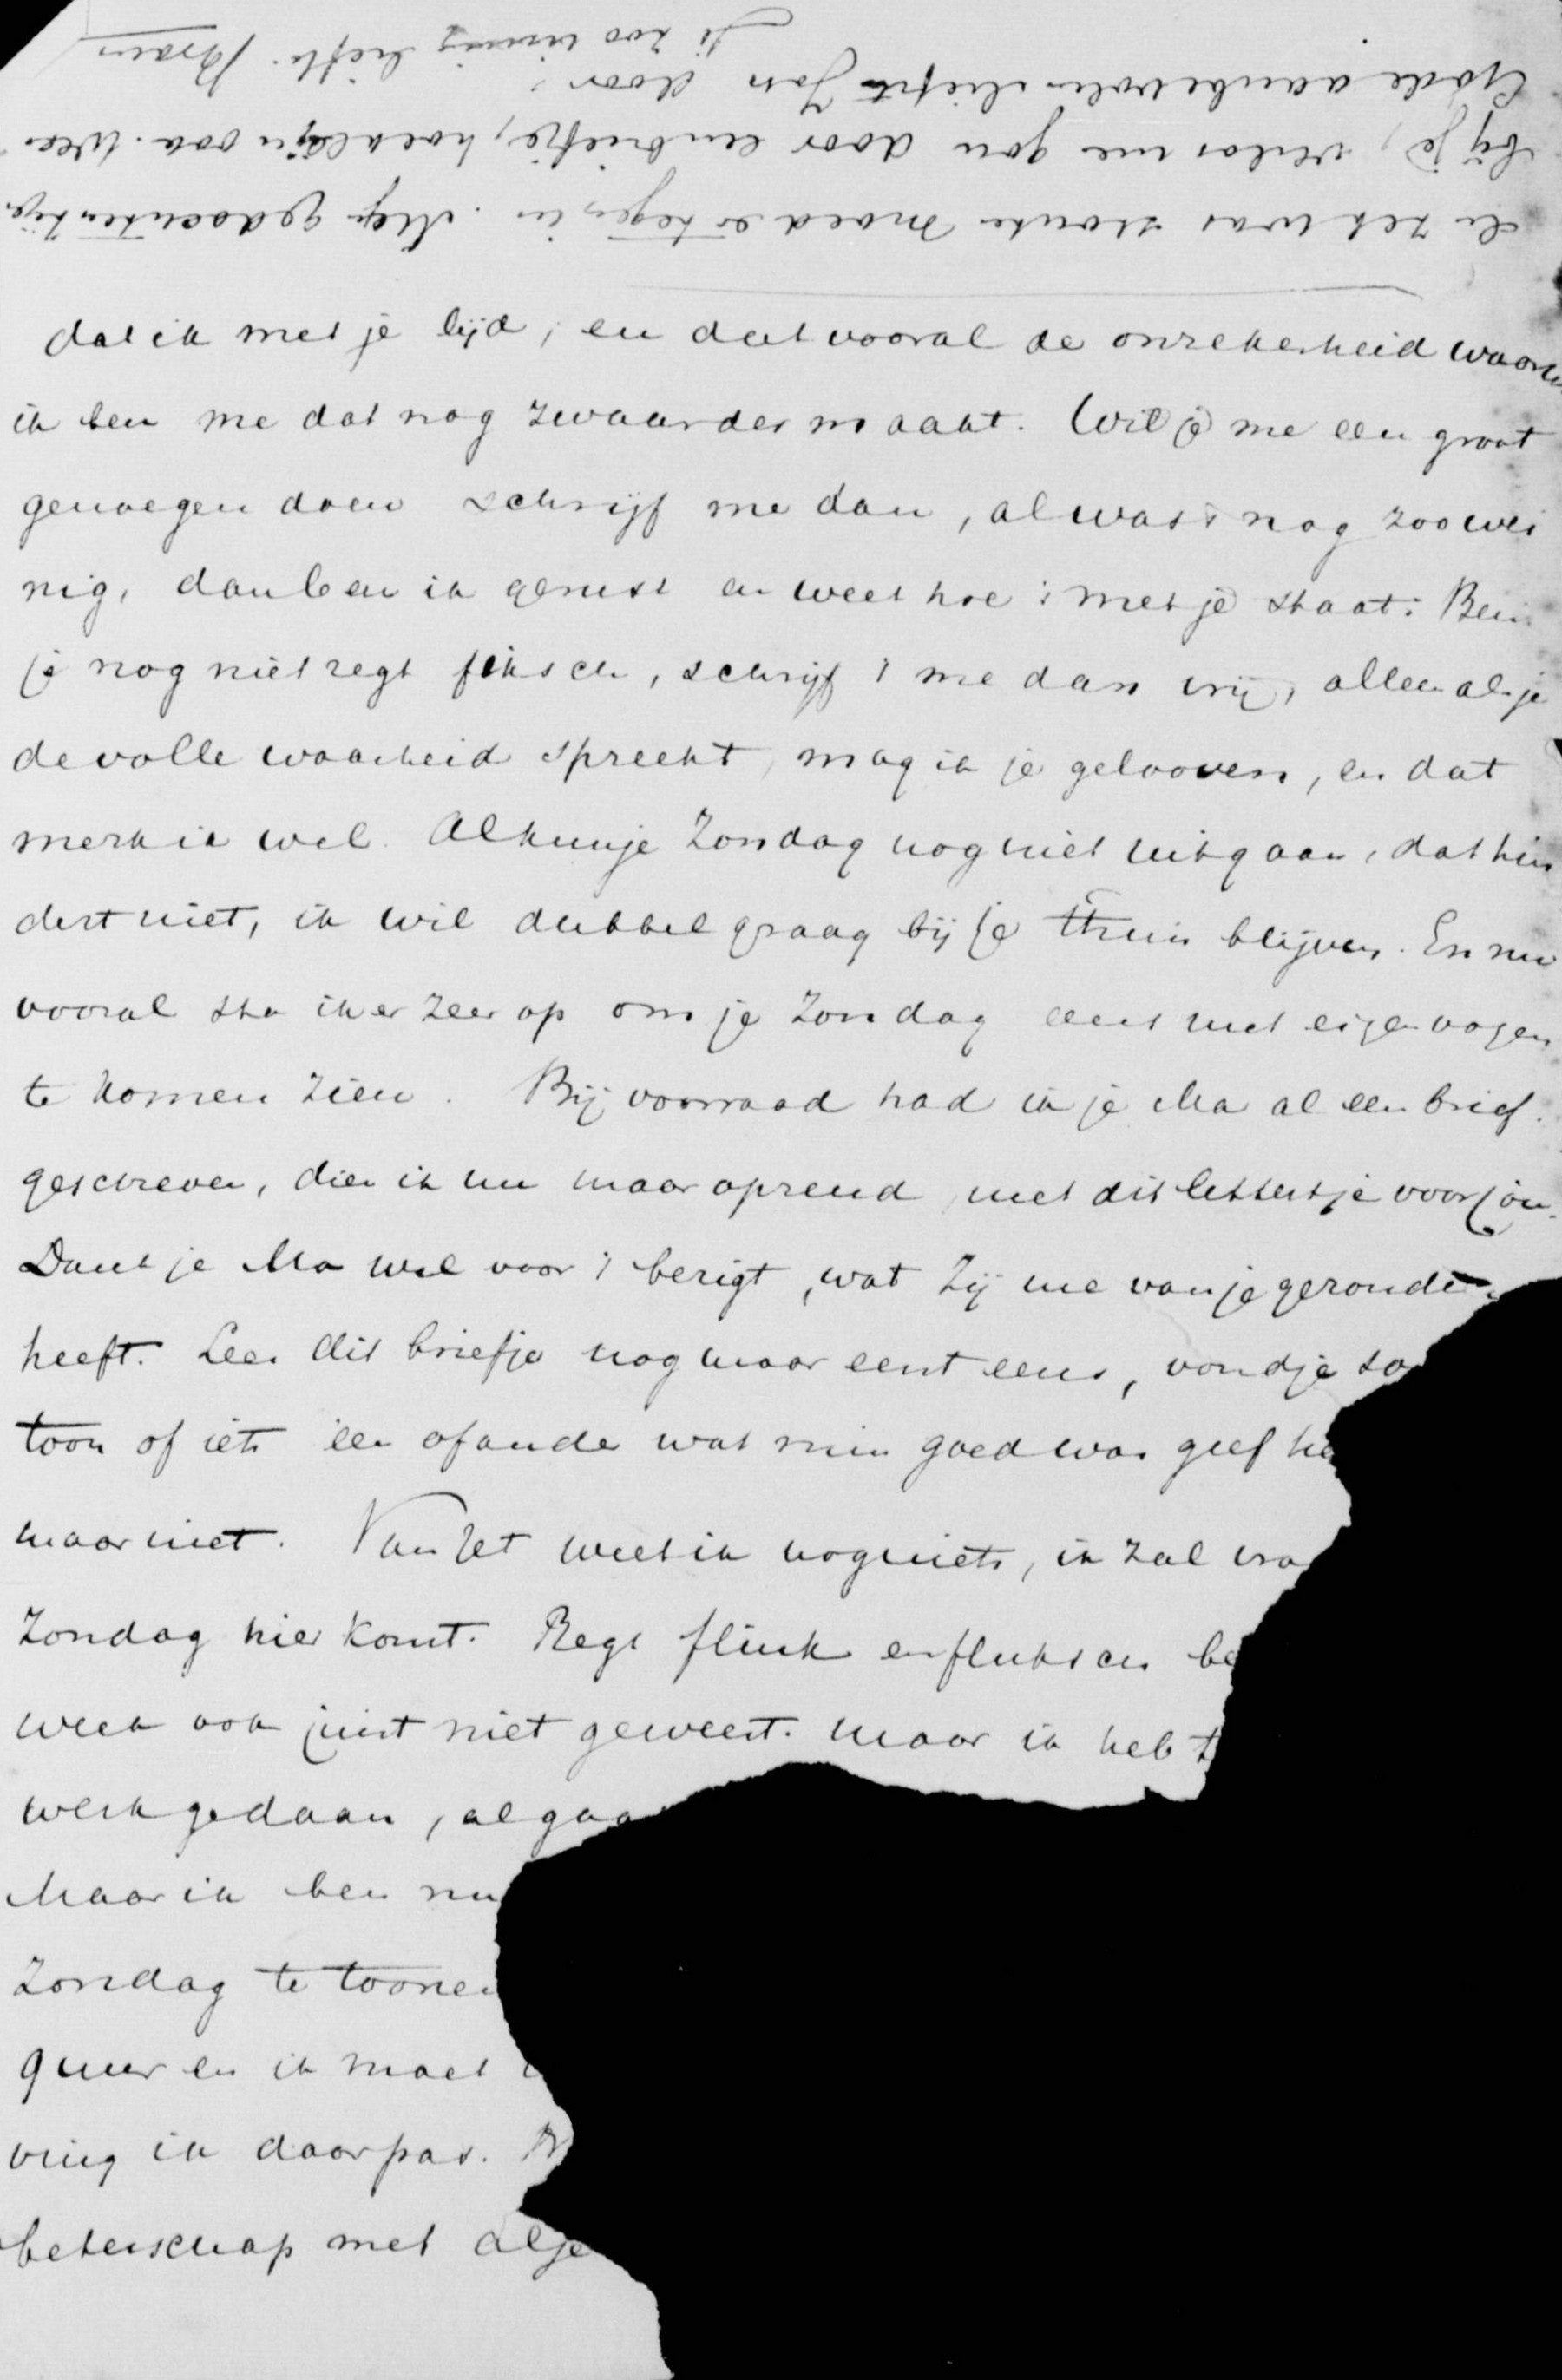 dat ik met je lijd, en dat vooral de onzekerheid waarin
ik ben me dat nog zwaarder maakt. Wil je me een groot
genoegen doen schrijf me dan, al was 't nog zoo wei
nig, dan ben ik gerust en weet hoe 't met je staat. Ben
je nog niet regt fiksch, schrijf 't me dan vrij, alleen als je
de volle waarheid spreekt, mag ik je gelooven, en dat
merk ik wel. Al kun je Zondag nog niet uitgaan, dat hin
dert niet, ik wil dubbel graag bij je thuis blijven. En nu
vooral sta ik er zeer op om je Zondag eens met eigen oogen
te komen zien. Bij voorraad had ik je Ma al een brief
geschreven, dien ik nu maar opzend met dit lettertje voor jou.
Dank je Ma wel voor 't berigt, wat zij me van je gezonden
heeft. Lees dit briefje nog maar eens eens, vond je so
toon of iets een of ander wat min goed was geef he
maar niet. Van Jet weet ik nog niets, ik zal vra
Zondag hier komt. Regt flink en fluksch be
week ook juist niet geweest. maar ik heb t
werk gedaan, al gaa
Maar ik ben nu
Zondag te toonen
guur en ik moet
ving ik daar pas.
beterschap met alje
en zet was stoute moed er tegen in. Mijn gedachten zijn
bij je, verlos me gou door een briefje, hoe klein ook. Wees
Gode aanbevolen liefste Jan door
je zoo innig liefh. Bram